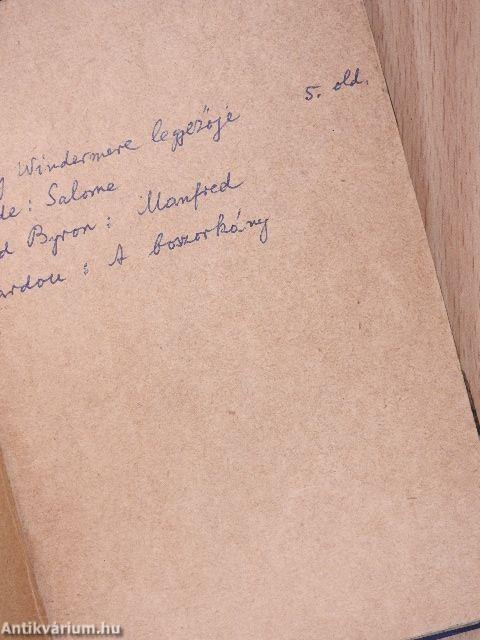 5. old.
y Windermere legyezője
de: Salome
d Byron: Manfred
ardou: A boszorkány
Antikvárium.hu